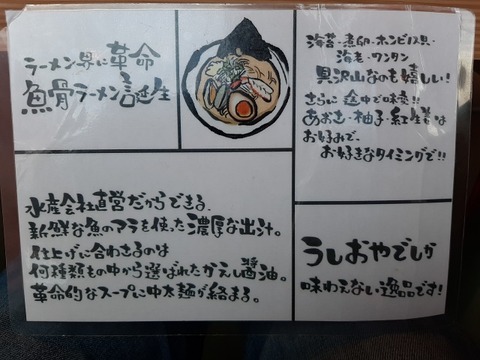 ラーメン界に革命
魚骨ラーメン誕生
海苔・煮卵・ホンビノス貝・
海老・ワンタン
具沢山なのも嬉しい!
さらに途中で味変!!
あおさ・柚子・紅生姜は
お好みで、
お好きなタイミングで!!
水産会社直営だからできる、
新鮮な魚のアラを使った濃厚な出汁。
仕上げに合わせるのは
何種類もの中から選ばれたかえし醤油。
革命的なスープに中太麺が絡まる。
うしおやでしか
味わえない逸品です!